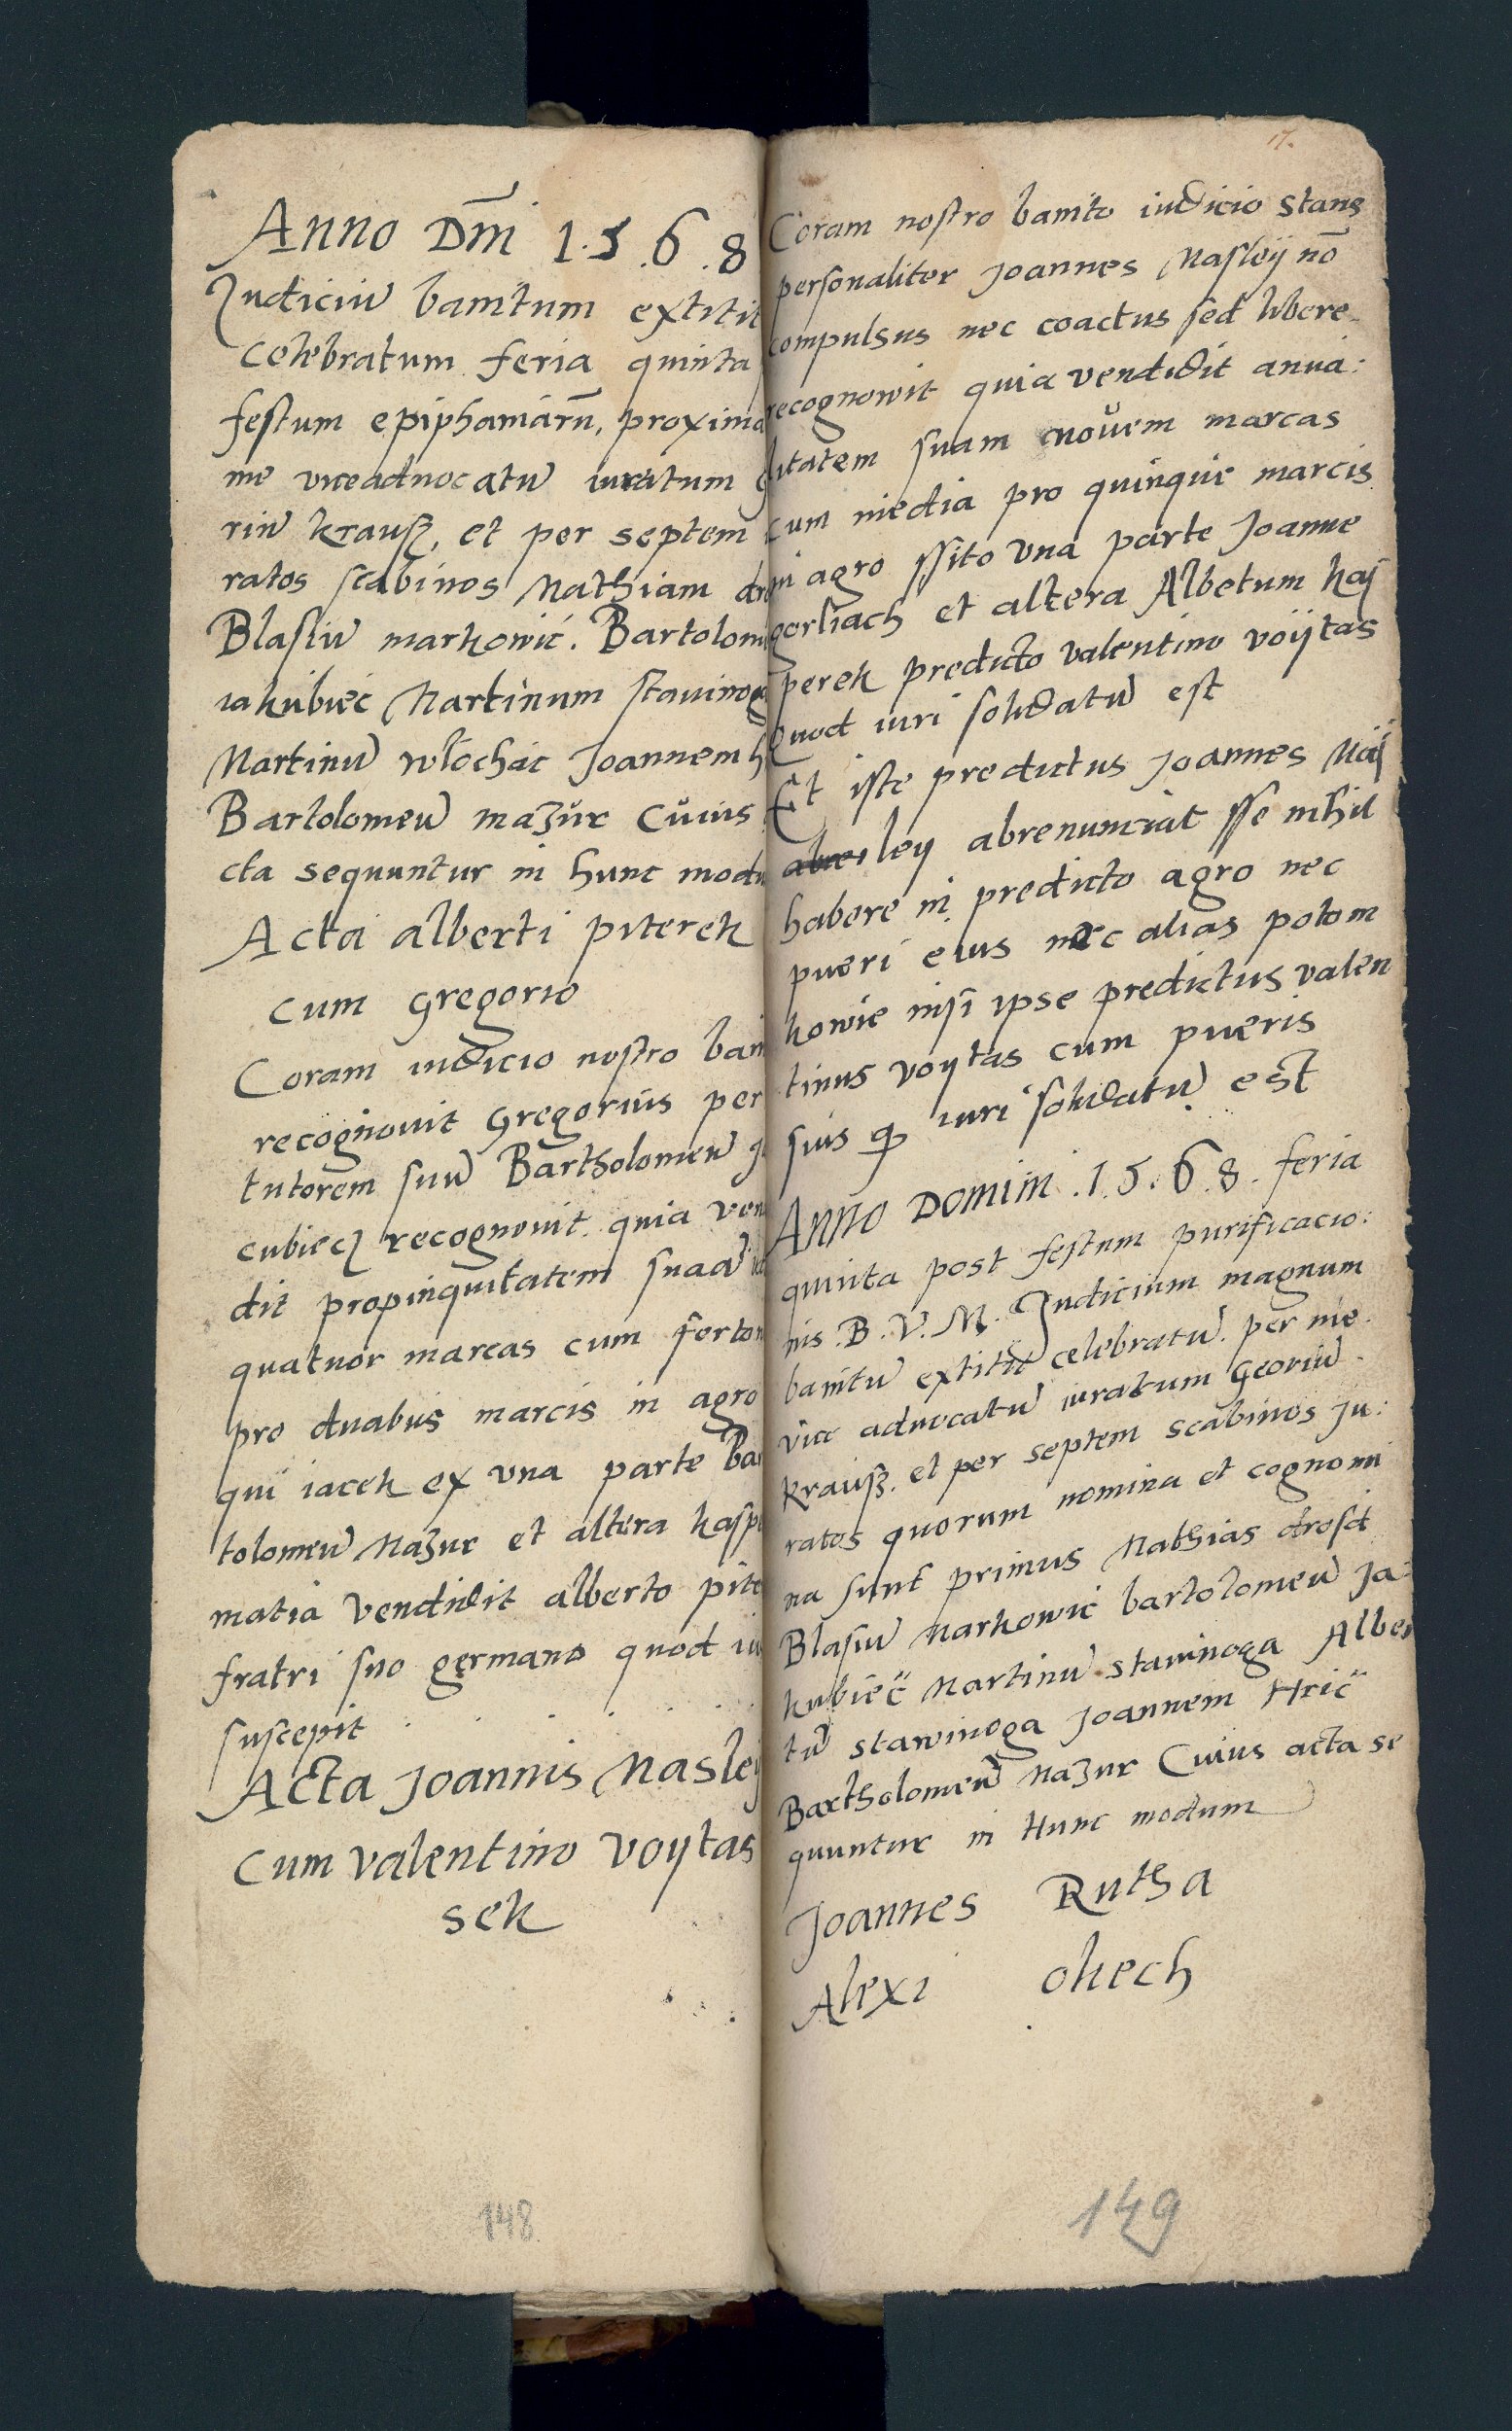 Anno Dm̄i 1.5.6.8
Judiciū banitum extitit
celebratum feria quinta
festum epiphaniarū, proximo
me viceadvocatū iuratum
riū krauß, et per septem
ratos scabinos Mathiam dro
Blasiū markowic. Bartolom
iakubiec Martinum stawinoga
Martinū wlochac Joannem h
Bartolomeū mazur Cuius
cta sequuntur in hunc modu
Acta alberti piterek
cum gregorio
Coram iudicio nostro ban
recognovit Gregorius per
tutorem suū Bartholomeū
cubiecz recognovit quia ven
dit propinquitatem suaā
quatuor marcas cum ferton
pro duabus marcis in agro
qui iacek ex una parte Bar
tolomeū Mazur et altera kasp
matia vendidit alberto pite
fratri suo germano quod iu
suscepit
Acta Joannis Masley
Cum valentino voytas
sek
148
17.
Coram nostro banito iudicio stans
personaliter Joannes Masleÿ nō
compulsus nec coactus sed libere
recognowit quia vendidit anua:
litatem suam novem marcas
cum media pro quinque marcis
in agro ssito una parte Joanne
gorliach et altera Albetum kas
perek predicto valentino voÿtas
Quod iuri solidatū est
Et iste predictus Joannes Mas
ley abrenunciat sse nihil
habere in predicto agro nec
pueri eius nec alias potom
kowie nisi ipse predictus valen
tinus voÿtas cum pueris
suis qđ iuri solidatū est
Anno Domini .1.5.6.8. feria
quinta post festum purificacio:
nis .B.V.M. Judicium magnum
banitū extitit celebratū per me
vice advocatū iuratum Georiū
krauß. et per septem scabinos Ju:
ratos quorum nomina et cognomi
na sunt primus Mathias drosd
Blasiū Markowic bartolomeū Ja:
kubiec Martinū stawinoga Alber
tū stawinoga Joannem Hric
Bartholomeū Mazur Cuius acta se
quuntur in Hunc modum
Joannes Rutha
Alexi okech
149